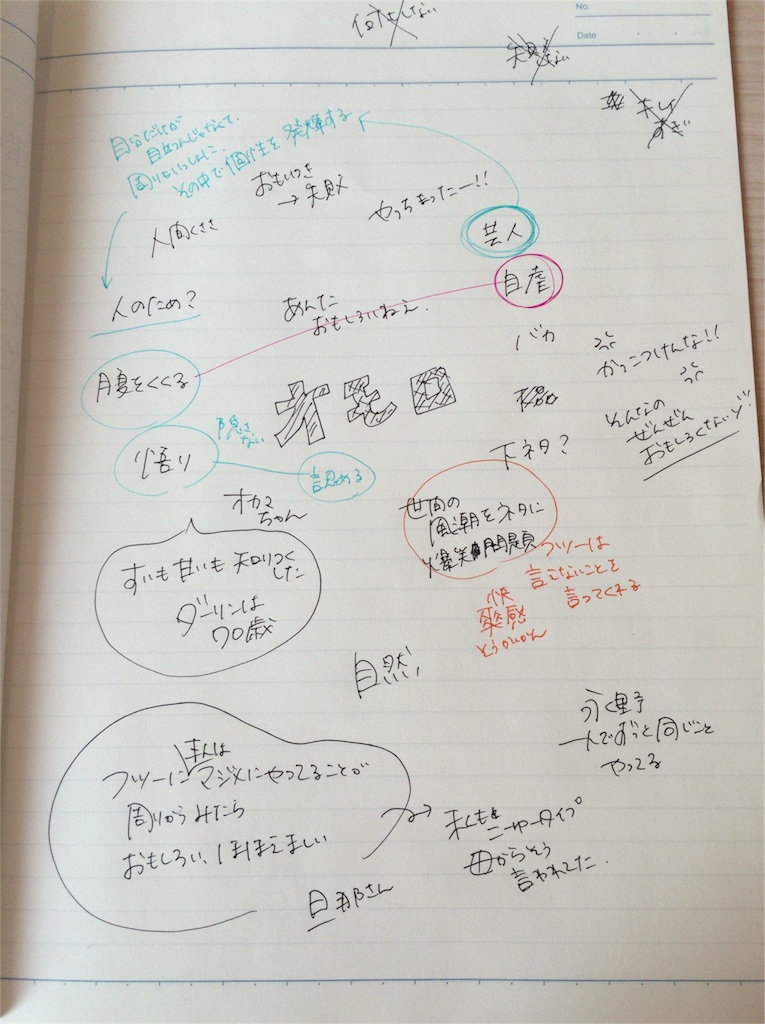 No.
Date
何もしない
失敗しない
すぎ
自分だけが
目立つんじゃなくて、
周りもいっしょに、
その中で個性を発揮する
おもいつき
→失敗
やっちまったー!!
人間くささ
芸人
自虐
人のため?
あんた
おもしろいねえ.
バカ
かっこつけんな!!
腹をくくる
オモロ
そんなの
ぜんぜん
おもしろくないよ!!
隠さ
ない
悟り
認める
下ネタ?
オカマ
ちゃん
世間の
風潮をネタに
爆笑問題
フツーは
言えないことを
言ってくれる
快
爽感
そうかいかん
すいも甘いも知りつくした
ダーリンは
70歳
自然
永里子
一人でずっと同じこと
やってる
本人は
フツーにマジメにやってることが
周りからみたら
おもしろい、ほほえましい
→
私もニュータイプ
母からそう
言われてた.
旦那さん